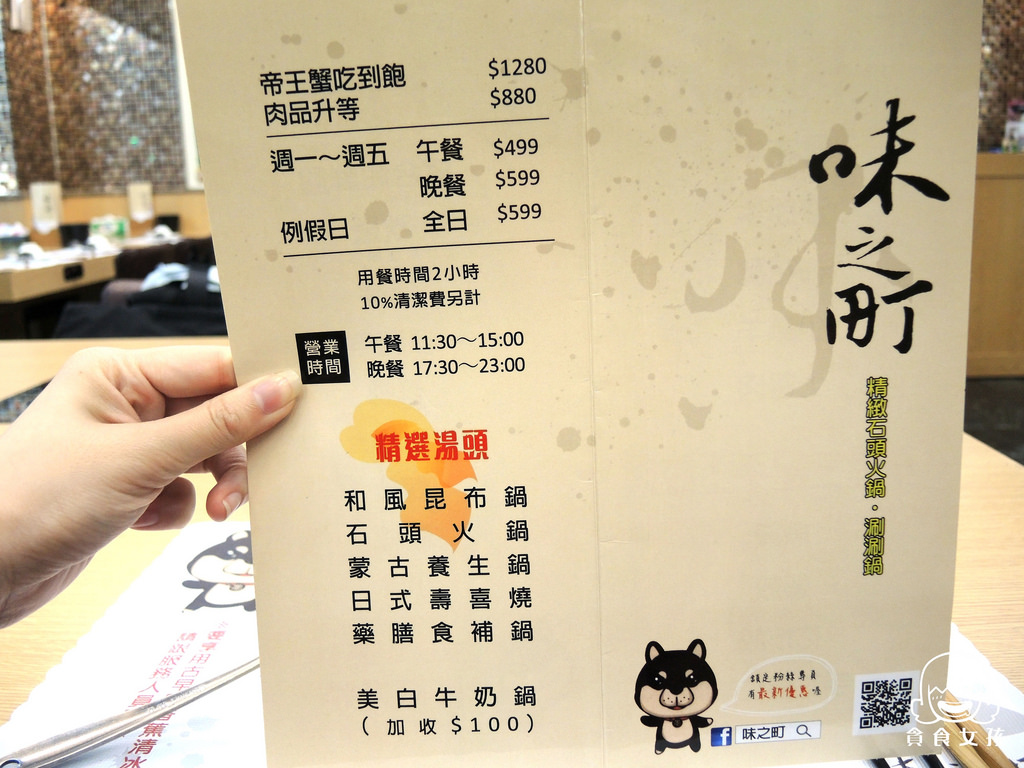 帝王蟹吃到飽 $1280
肉品升等 $880
週一～週五 午餐 $499
晚餐 $599
例假日 全日 $599
用餐時間2小時
10%清潔費另計
營業時間
午餐 11:30～15:00
晚餐 17:30～23:00
精選湯頭
和風昆布鍋
石頭火鍋
蒙古養生鍋
日式壽喜燒
藥膳食補鍋
美白牛奶鍋
(加收$100)
味之町
精緻石頭火鍋・涮涮鍋
請是粉絲專頁
有最新優惠喔
f 味之町
貪食女孩